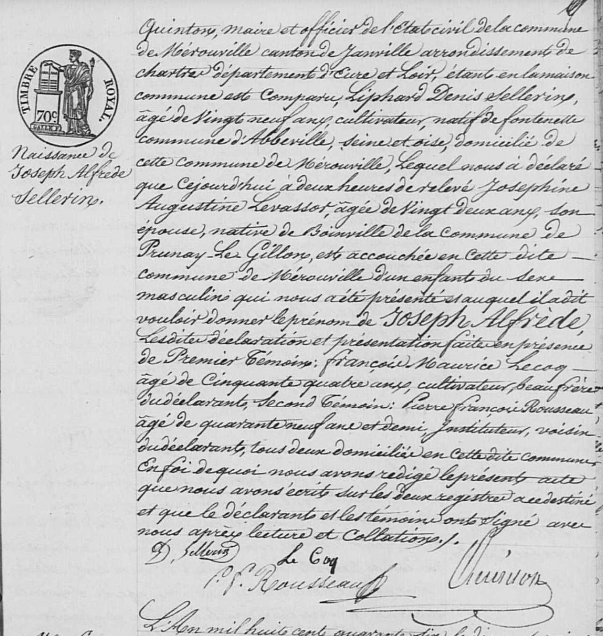 Quinton, maire et officier de l'Etat civil de la commune
de Mérouville canton de Janville arrondissement de
chartre département d'Eure et Loir, étant en la maison
commune est Comparu, Liphard Denis Sellerin,
âgé de Vingt neuf ans, cultivateur, natif de fontenette
commune d'Abbeville, seine et oise, domicilié de
cette Commune de Mérouville, Lequel nous a déclaré
que Cejourd'hui à deux heures de relevé Josephine
Augustine Levassor, âgée de Vingt deux ans, son
épouse, native de Boinville de la Commune de
Prunay-Le Gillon, est accouchée en Cette dite
commune de Mérouville d'un enfant du sexe
masculin qui nous a été présenté et auquel il a dit
vouloir donner le prénom de Joseph Alfrède,
Lesdites déclaration et présentation faite en présence
de Premier Témoin: françois Maurice Lecoq
âgé de Cinquante quatre ans, cultivateur, beau frère
du déclarant, Second Témoin: Pierre françois Rousseau
âgé de quarante neuf ans et demi, Instituteur, voisin
du déclarant, tous deux domicilié en Cette dite commune
En foi de quoi nous avons rédigé le présent acte
que nous avons écrit sur les deux registre a ce destiné
et que le déclarant et les témoins ont signé avec
nous après lecture et Collation./.
D, Sellerin
Le Coq
P. F. Rousseau
Quinton
L'An mil huit cent quarante
TIMBRE ROYAL
70c
Naissance de
Joseph Alfrède
Sellerin,